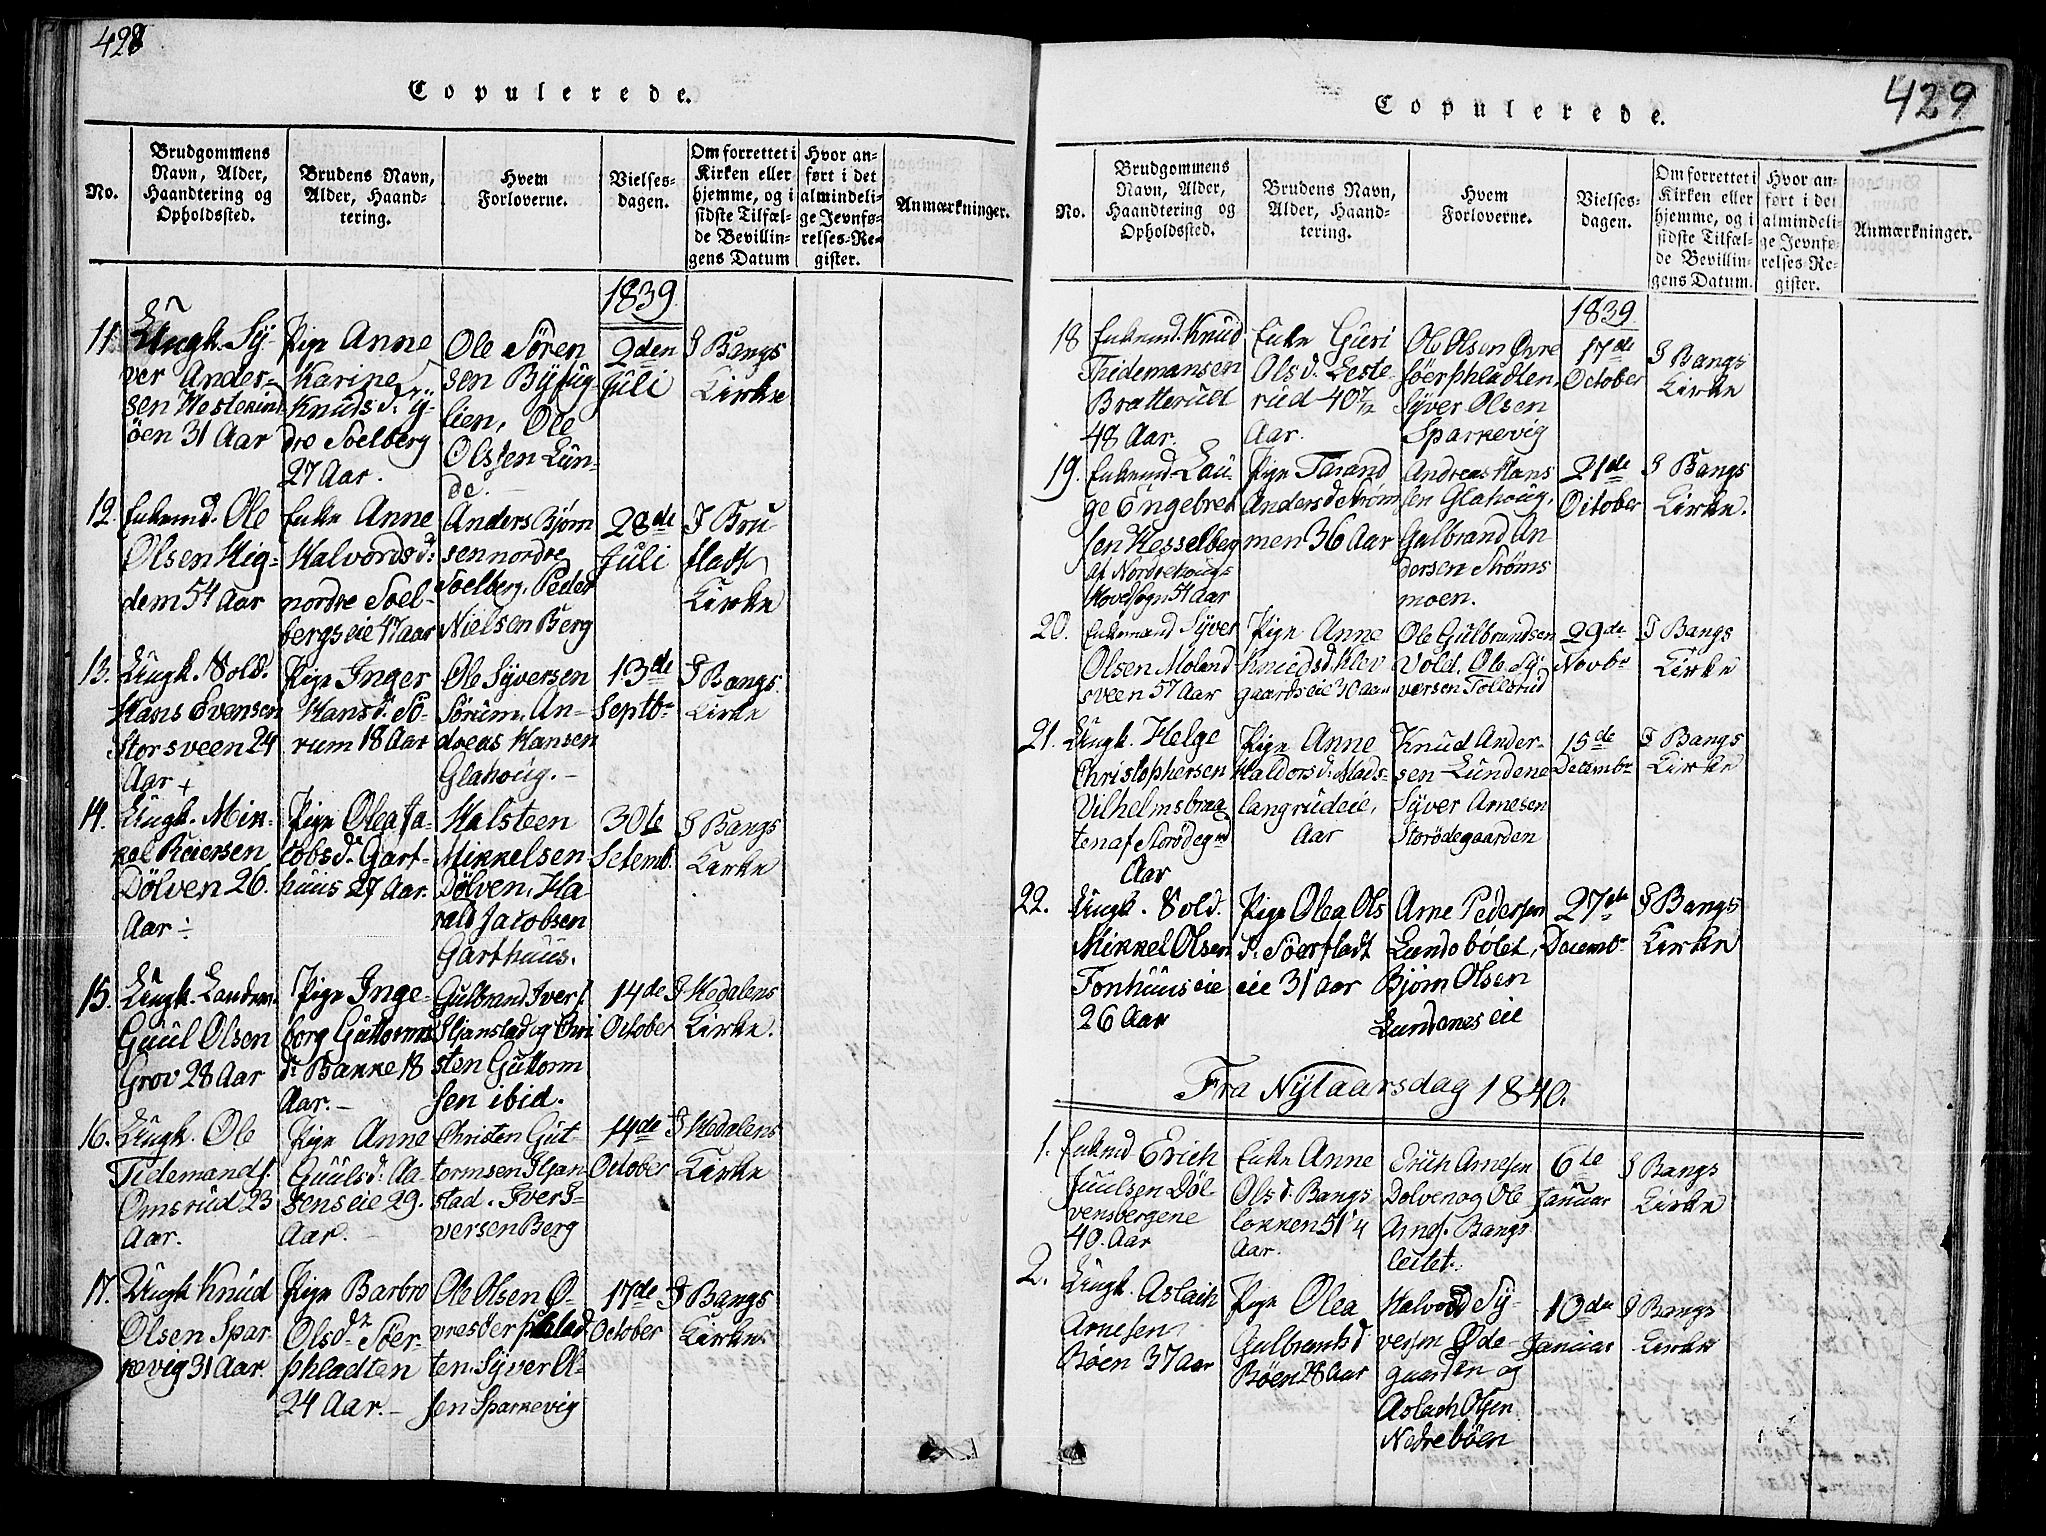 428
Copulerede.
No.
Brudgommens Navn, Alder, Haandtering og Opholdssted.
Brudens Navn, Alder, Haandtering.
Hvem Forloverne.
Vielsesdagen.
Om forrettet i Kirken eller hjemme, og i sidste Tilfælde Bevillingens Datum
Hvor anført i det almindelige Jevnførelses-Register.
Anmærkninger.
1839
11.
Ungk. Sy-
ver Ander-
sen Westerind
öen 31 Aar
Pige Anne
Karine
Knudsd. Ÿ-
dre Soelberg
27 Aar.
Ole Sören
sen Byfug-
lien, Ole
Olssen Lun-
de.
2den
Juli
I Bangs
Kirke
12.
Enkemd. Ole
Olsen Hig-
dem 54 Aar
Enke Anne
Halvordsd.
nordre Soel-
bergseie 47 Aar
Anders Bjørn
sen nordre
Soelberg, Peder
Nielsen Berg
28de
Juli
I Bru-
flads
Kirke
13.
Ungk. Sold.
Hans Svensen
Storsveen 24
Aar +
Pige Inger
Hansd. Sö-
rum 18 Aar
Ole Syversen
Sörum, An-
dreas Hansen
Glahoug.-
13de
Septbr
I Bangs
Kirke
14.
Ungk. Mik-
kel Reiersen
Dölven 26.
Aar
Pige Olea Ja-
cobsd. Gart-
huus 27 Aar.
Halsteen
Mikkelsen
Dölven, Ha-
rald Jacobsen
Garthuus.
30te
Setemb.
I Bangs
Kirke
15.
Ungk. Landm.
Guul Olsen
Grov 28 Aar
Pige Inge-
borg Guttorms
d. Bakke 18
Aar.-
Gulbrand Ivers.
Iljanstad og Chri
sten Guttorm
sen ibid.
14de
October
I Hedalens
Kirke.
16.
Ungk. Ole
Tidemands.
Omsrud 23
Aar.
Pige Anne
Guulsd. Aa-
senseie 29.
Aar.
Christen Gut-
tormsen Iljan
stad. Iver I-
versen Berg
14de
October
I Hedalens
Kirke
17.
Ungk Knud
Olsen Spar
kevig 31 Aar.
Pige Barbro
Olsd. Söer-
phladten
24 Aar.-
Ole Olsen Ø-
vre
ten, Syver Ol-
sen Sparkevig
17de
October
I Bangs
Kirke
429
Copulerede.
No.
Brudgommens Navn, Alder, Haandtering og Opholdssted.
Brudens Navn, Alder, Haandtering.
Hvem Forloverne.
Vielsesdagen.
Om forrettet i Kirken eller hjemme, og i sidste Tilfælde Bevillingens Datum.
Hvor anført i det almindelige Jevnførelses-Register.
Anmærkninger.
1839
18
Enkemd. Knud
Thidemansen
Bratterud
48 Aar.
Enke Guri
Olsd. Leste
rud 40
Aar.
Ole Olsen Øvre
Söerphladten,
Syver Olsen
Sparkevig
17de
October
I Bangs
Kirke
19.
Enkemd. Lau
ge Engebret
sen Hesselberg
af Nordrehougs
Hovedsogn 54 Aar
Pige Tarand
Andersd Ström
men 36 Aar
Andreas Hans
sen Glahoug,
Gulbrand An
dersen Ströms
moen.
21de
October
I Bangs
Kirke.
20.
Enkemand Syver
Olsen Moland
sveen 57 Aar
Pige Anne
Knudsd. Klev
gaardseie 30 Aar
Ole Gulbrandsen
Vold. Ole Sy-
versen Tollefrud
29de
Novbr
I Bangs
Kirke
21.
Ungk. Helge
Christophersen
Vilhelmsbraa
ten af Storödegrd
Aar
Pige Anne
Haldorsd. Mads-
langrudeie,
Aar
Knud Ander-
sen Lundene
Syver Arnesen
Storödegaarden
15de
Decembr
I Bangs
Kirke
22.
Ungk. Sold.
Mikkel Olsen
Tonhuuseie
26 Aar
Pige Olea Ols
d. Söerfladt
eie 31 Aar
Arne Pedersen
Lundebölet,
Bjørn Olsen
Lundeneseie
27de
Decembr
I Bangs
Kirke
Fra Nytaarsdag 1840.
1.
Enkemd Erich
Juulsen Döl
vensbergene
40. Aar
Enke Anne
Olsd. Bangs
lokken 51 1/4
Aar.
Erich Arnesen
Dolven og Ole
Arnes. Bangs
leitet.
6te
Januar
I Bangs
Kirke
2.
Ungk. Aslach
Arnesen
Böen 37 Aar
Pige Olea
Gulbrandsd.
Böen 28 Aar
Halvord Sy-
versen Øde-
gaarden og
Aslach Olsen
Nedreböen
10de
Januar
I Bangs
Kirke